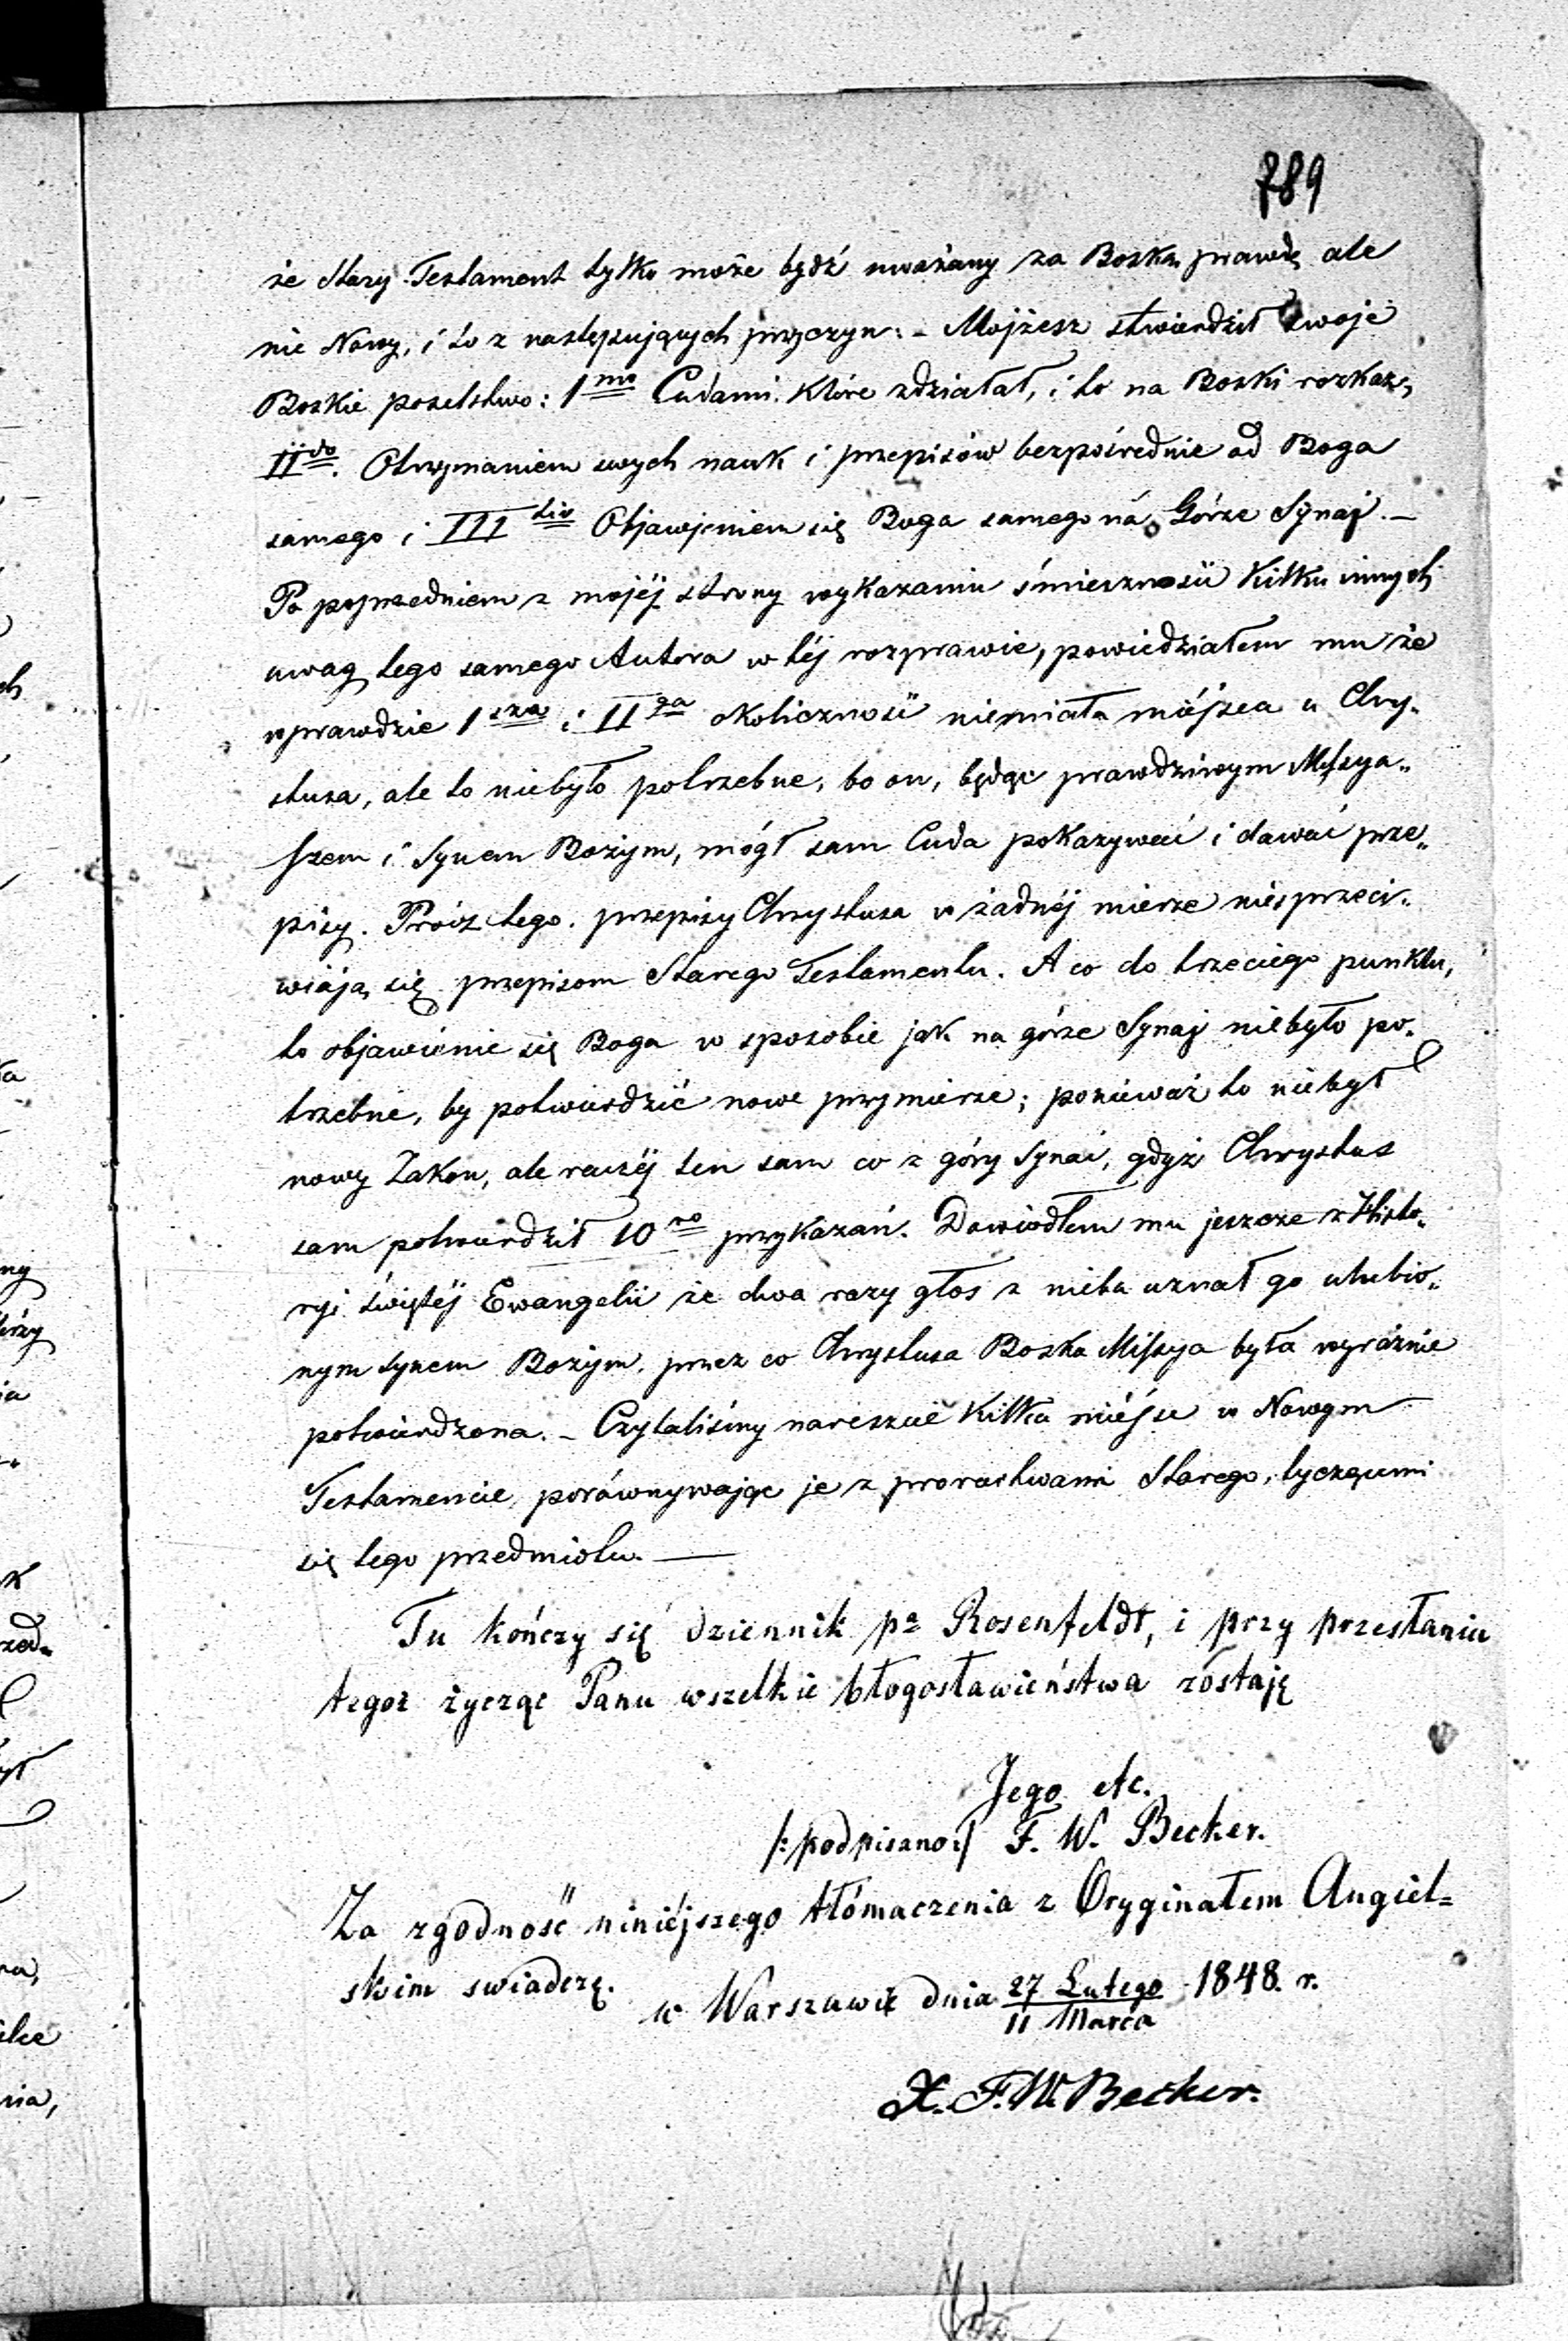 789
że Stary Testament tylko może bydź uważany za Boską prawdę ale
nie Nowy, i to z następujących przyczyn: - Mojżesz stwierdził swoje
Boskie poselstwo: 1mo Cudami które zdziałał, i to na Boski rozkaz,
IIdo. Otrzymaniem swych nauk i przepisów bezpośrednie od Boga
samego i IIItio Objawieniem się Boga samego na Górze Synaj. —
Po poprzedniem z mojéj strony wykazaniu śmieszności kilku innych
uwag tego samego Autora w téj rozprawie, powiedziałem mu że
wprawdzie 1sza i IIga okoliczność niemiała miéjsca u Chry„
stusa, ale to niebyło potrzebne, bo on, będąc prawdziwym Messya„
szem i Synem Bożym, mógł sam Cuda pokazywać i dawać prze„
pisy. Prócz tego. przepisy Chrystusa w żadnéj mierze niesprzeci„
wiają się przepisom Starego Testamentu. A co do trzeciego punktu,
to objawienie się Boga w sposobie jak na górze Synaj niebyło po„
trzebne, by potwierdzić nowe przymierze; ponieważ to niebył
nowy Zakon, ale raczéj ten sam co z góry Synai, gdyż Chrystus
sam potwierdził 10ro przykazań. Dowiodłem mu jeszcze z Histo„
ryi świętéj Ewangelii że dwa razy głos z nieba uznał go ulubio„
nym synem Bożym, przez co Chrystusa Boska Missya była wyraźnie
potwierdzona. - Czytaliśmy nareszcie kilka miéjsc w Nowym
Testamencie, porównywając je z proroctwami Starego, tyczącemi
się tego przedmiotu. —
Tu kończy się dziennik pa Rosenfeldt, i przy przesłaniu
tegoż życząc Panu wszelkie błogosławieństwa zostaję
Jego etc.
/:podpisano:/ F. W. Becker.
Za zgodność niniéjszego tłómaczenia z Oryginałem Angiel=
skim swiadczę.
w Warszawie dnia 27 Lutego 1848. r.
11 Marca
X. F. W. Becker.